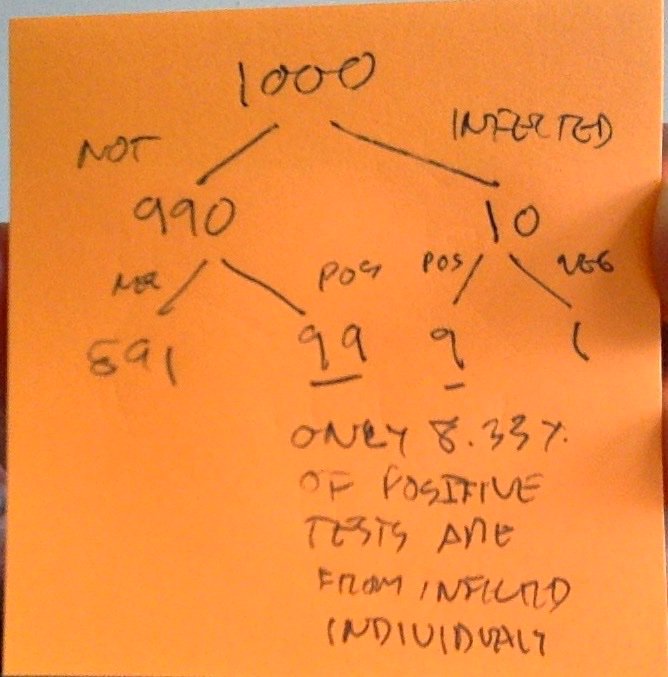 1000
NOT INFECTED
990 10
NEG POS POS NEG
891 99 9 1
ONLY 8.33%
OF POSITIVE
TESTS ARE
FROM INFECTED
INDIVIDUALS